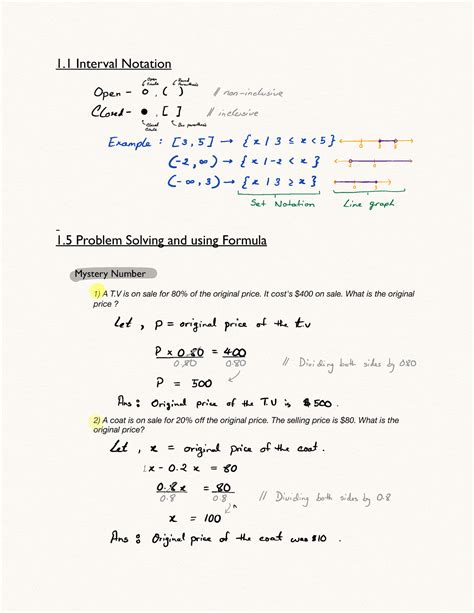 1.1 Interval Notation
Open Circle Round Parenthesis
Open - o, ( ) // non-inclusive
Closed - ●, [ ] // inclusive
Closed Circle Box parenthesis
Example : [3, 5] → { x | 3 ≤ x < 5 }
(-2, ∞) → { x | -2 < x }
(-∞, 3) → { x | 3 ≥ x }
Set Notation Line graph
1.5 Problem Solving and using Formula
Mystery Number
1) A T.V is on sale for 80% of the original price. It cost's $400 on sale. What is the original
price ?
Let , P = original price of the t.v
P x 0.80 = 400
0.80 0.80 // Dividing both sides by 0.80
P = 500
Ans : Original price of the T.V is $ 500.
2) A coat is on sale for 20% off the original price. The selling price is $80. What is the
original price?
Let , x = original price of the coat.
1x - 0.2 x = 80
0.8 x = 80
0.8 0.8 // Dividing both sides by 0.8
x = 100
Ans : Original price of the coat was $10 .